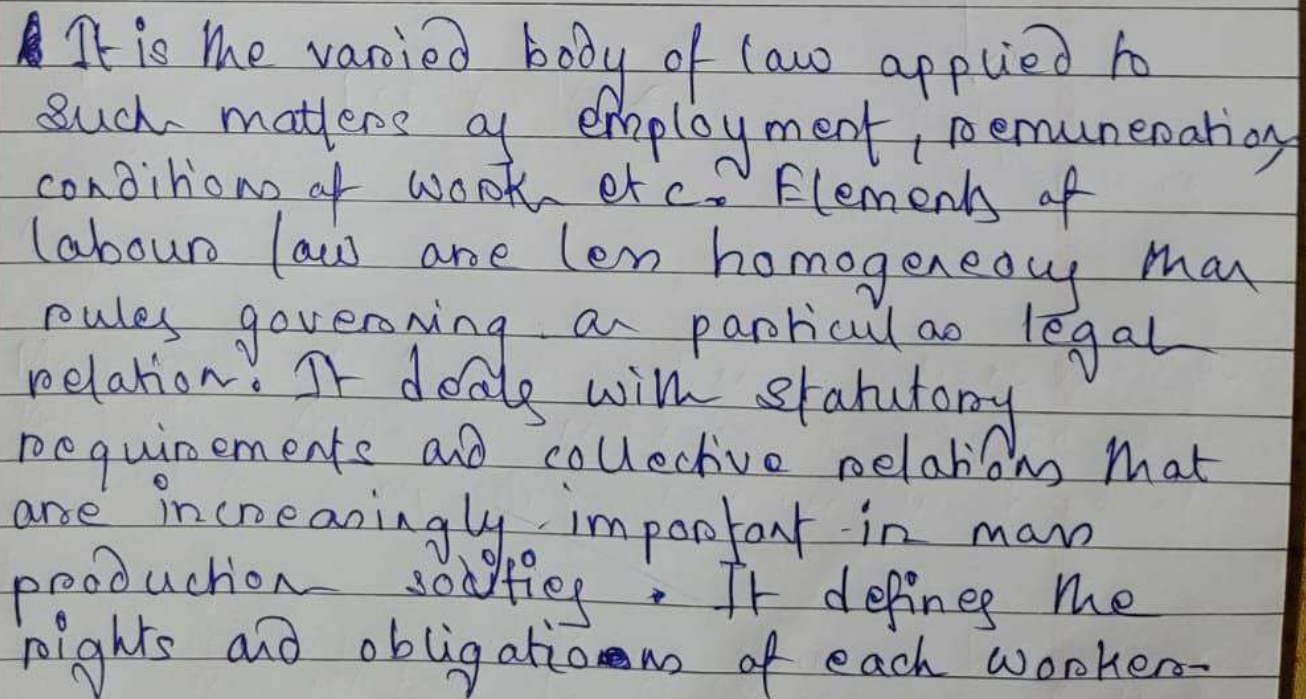 It is the varied body of law applied to
such matters as employment, remuneration,
conditions of work etc. Elements of
labour law are less homogeneous than
rules governing a particular legal
relation. It deals with statutory
requirements and collective relations that
are increasingly important in mass
production societies. It defines the
rights and obligations of each worker-